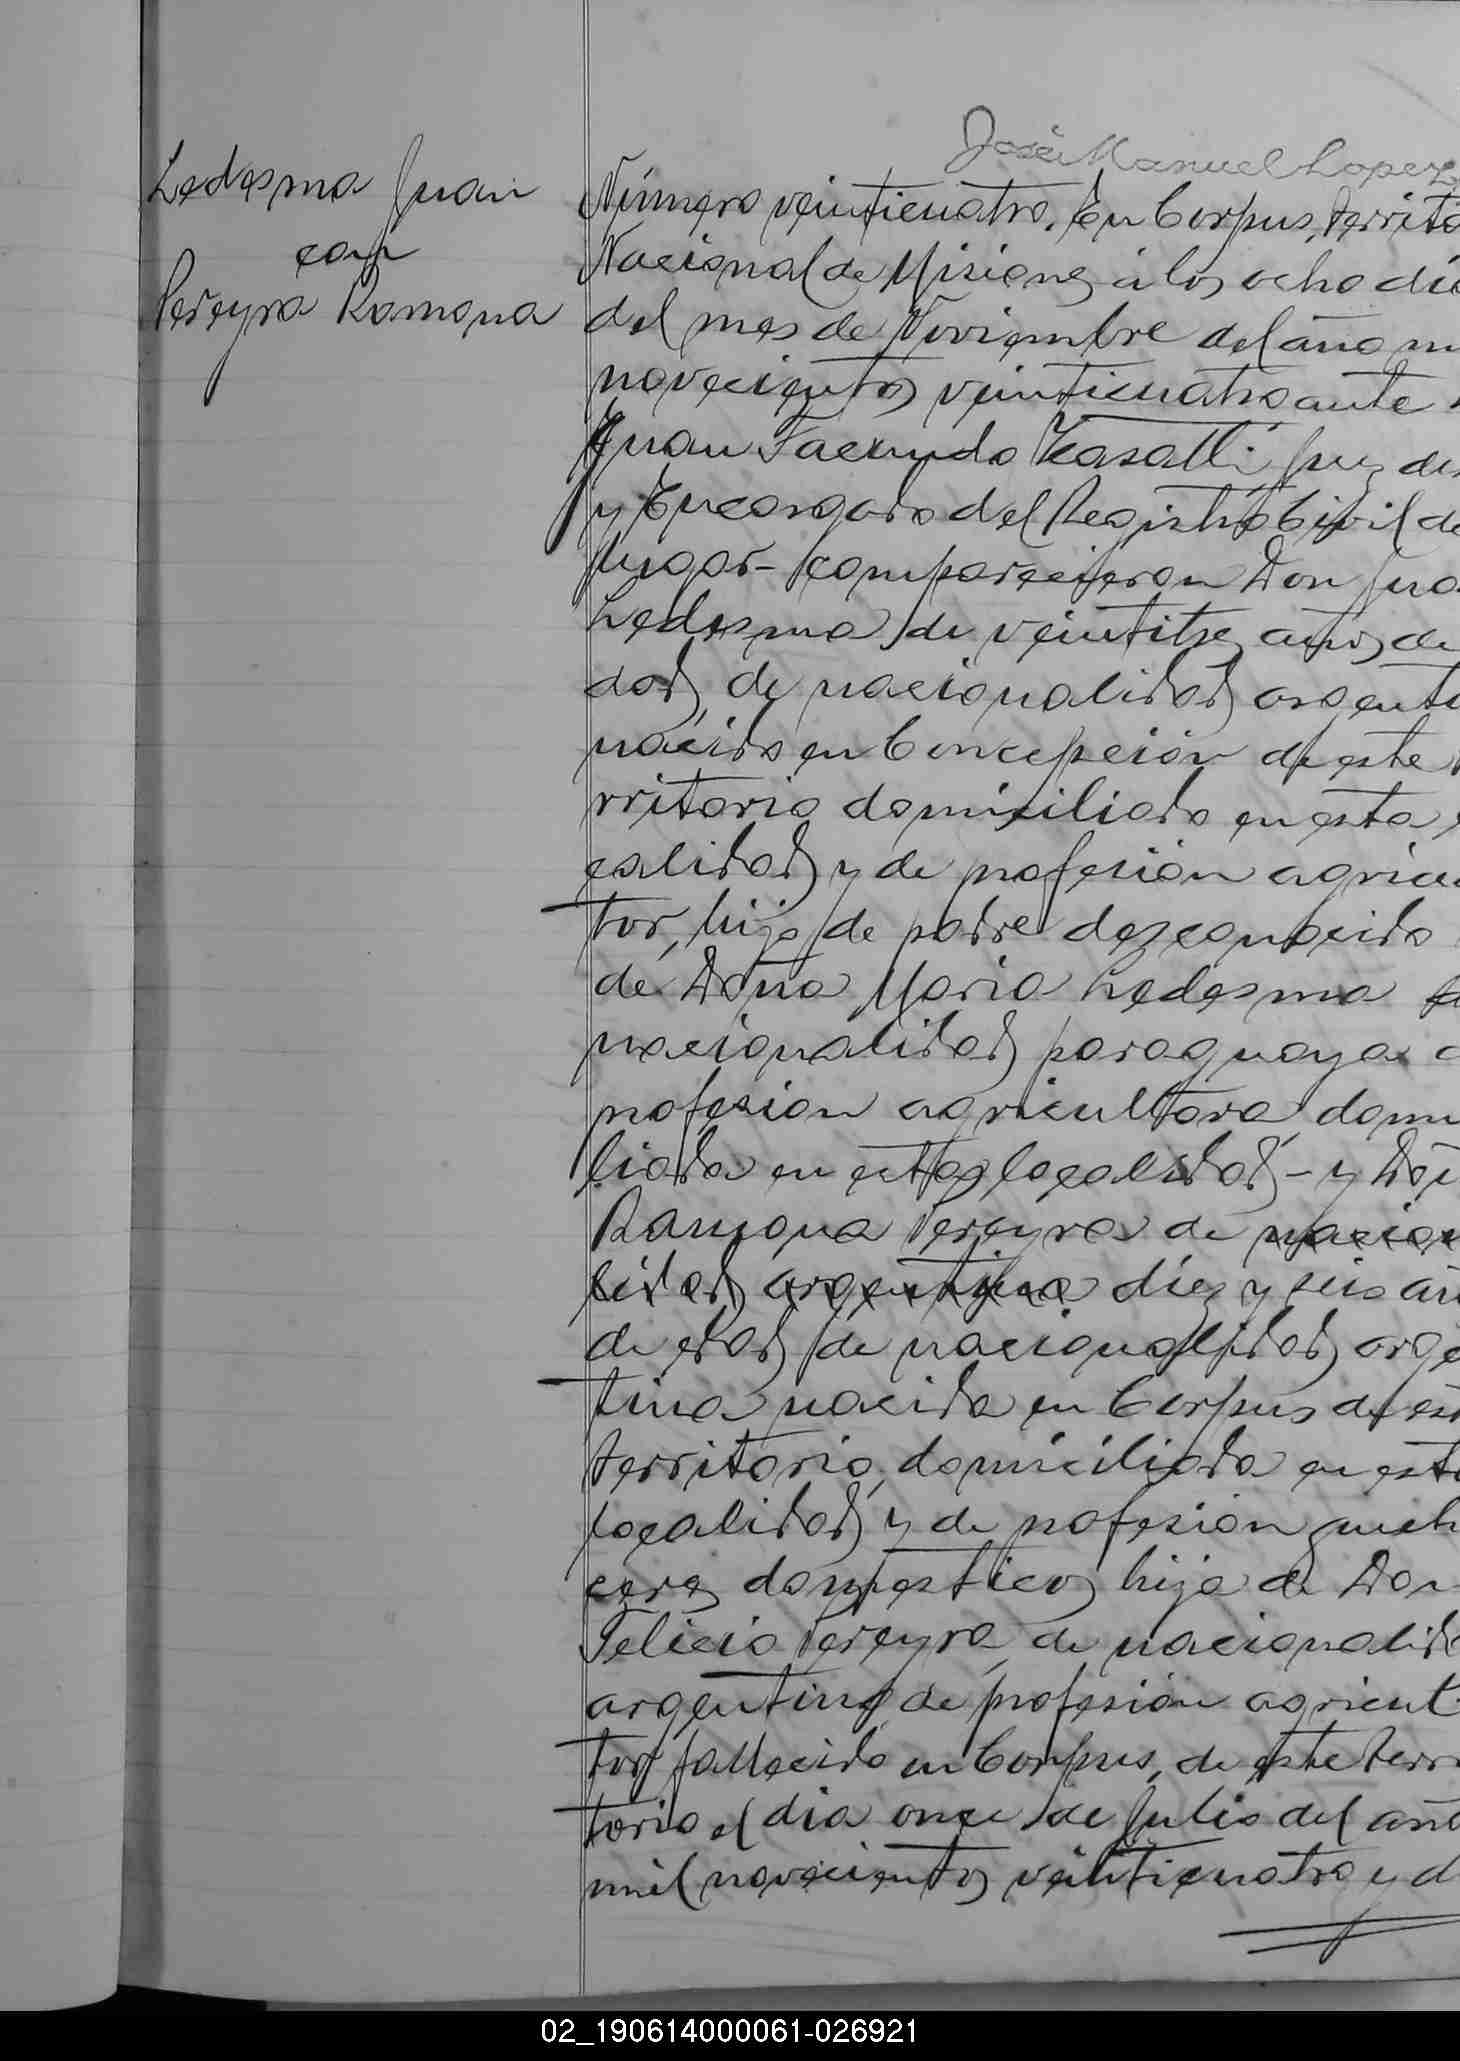 José Manuel Lopez
Ledesma Juan
con
Pereyra Ramona
Número veinticuatro. En Corpus, territo
Nacional de Misiones á los ocho día
del mes de Noviembre del año m
novecientos veinticuatro ante
Juan Facundo Casalli Juez de
y Encargado del Registro Civil de
lugar - comparecieron Don Jua
Ledesma de veintitres años de
dad, de nacionalidad argenti
nacido en Concepción de este
rritorio domiciliado en esta
calidad y de profesión agricu
tor, hijo de padre desconocido
de Doña Maria Ledesma
nacionalidad paraguaya
profesion agricultora domi
liada en esta localidad - y Doñ
Ramona Pereyra de nacion
lidad argentina diez y seis añ
de edad de nacionalidad arge
tina nacida en Corpus de est
territorio, domiciliada en esta
localidad y de profesión queh
ceres domesticos hija de Don
Felicio Pereyra, de nacionalid
argentino de profesión agricul
tor fallecido en Corpus, de este terri
torio el dia once de Julio del año
mil novecientos veinticuatro y d
02_190614000061-026921